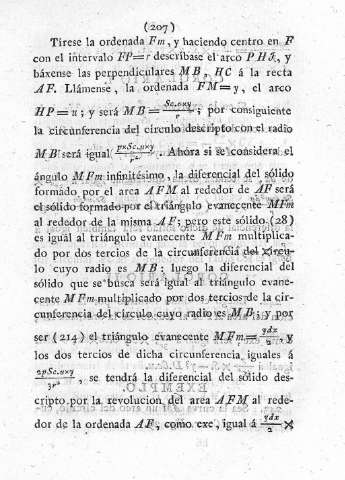 (207)
Tírese la ordenada Fm, y haciendo centro en F
con el intérvalo FP=r descríbase el arco PH&, y
báxense las perpendiculares MB, HC á la recta
AF. Llámense, la ordenada FM=y, el arco
HP=u; y será MB= Sc.uxy/r ; por consiguiente
la circunferencia del circulo descripto con el radio
MB será igual pxSc.uxy/r² . Ahora si se considera el
ángulo MFm infinitésimo, la diferencial del sólido
formado por el area AFM al rededor de AF será
el sólido formado por el triángulo evanecente MFm
al rededor de la misma AF; pero este sólido (28)
es igual al triángulo evanecente MFm multiplica-
do por dos tercios de la circunferencia del círcu-
lo cuyo radio es MB: luego la diferencial del
sólido que se busca será igual al triángulo evane-
cente MFm multiplicado por dos tercios de la cir-
cunferencia del circulo cuyo radio es MB; y por
ser (214) el triángulo evanecente MFm= ydx/2 , y
los dos tercios de dicha circunferencia iguales á
2pSc.uxy/3r² , se tendrá la diferencial del sólido des-
cripto por la revolucion del area AFM al rede-
dor de la ordenada AF, como exe, igual á ydx/2 ×